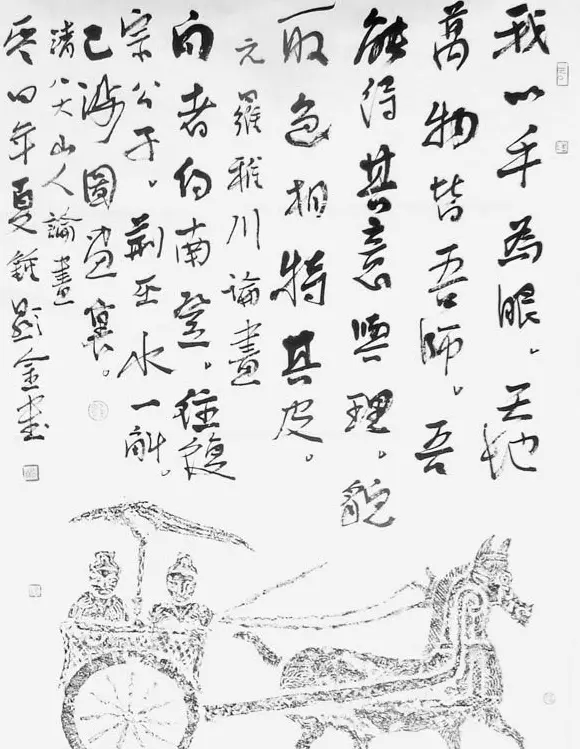 我以手為眼。天地
萬物皆吾師。吾
能得其意與理。貌
取色相特其皮。
元羅稚川論畫
向者約南登。往復
宗公子。荆巫水一斛。
已涉圖畫裏。
清八大山人論畫
零四年夏鍾顯金書